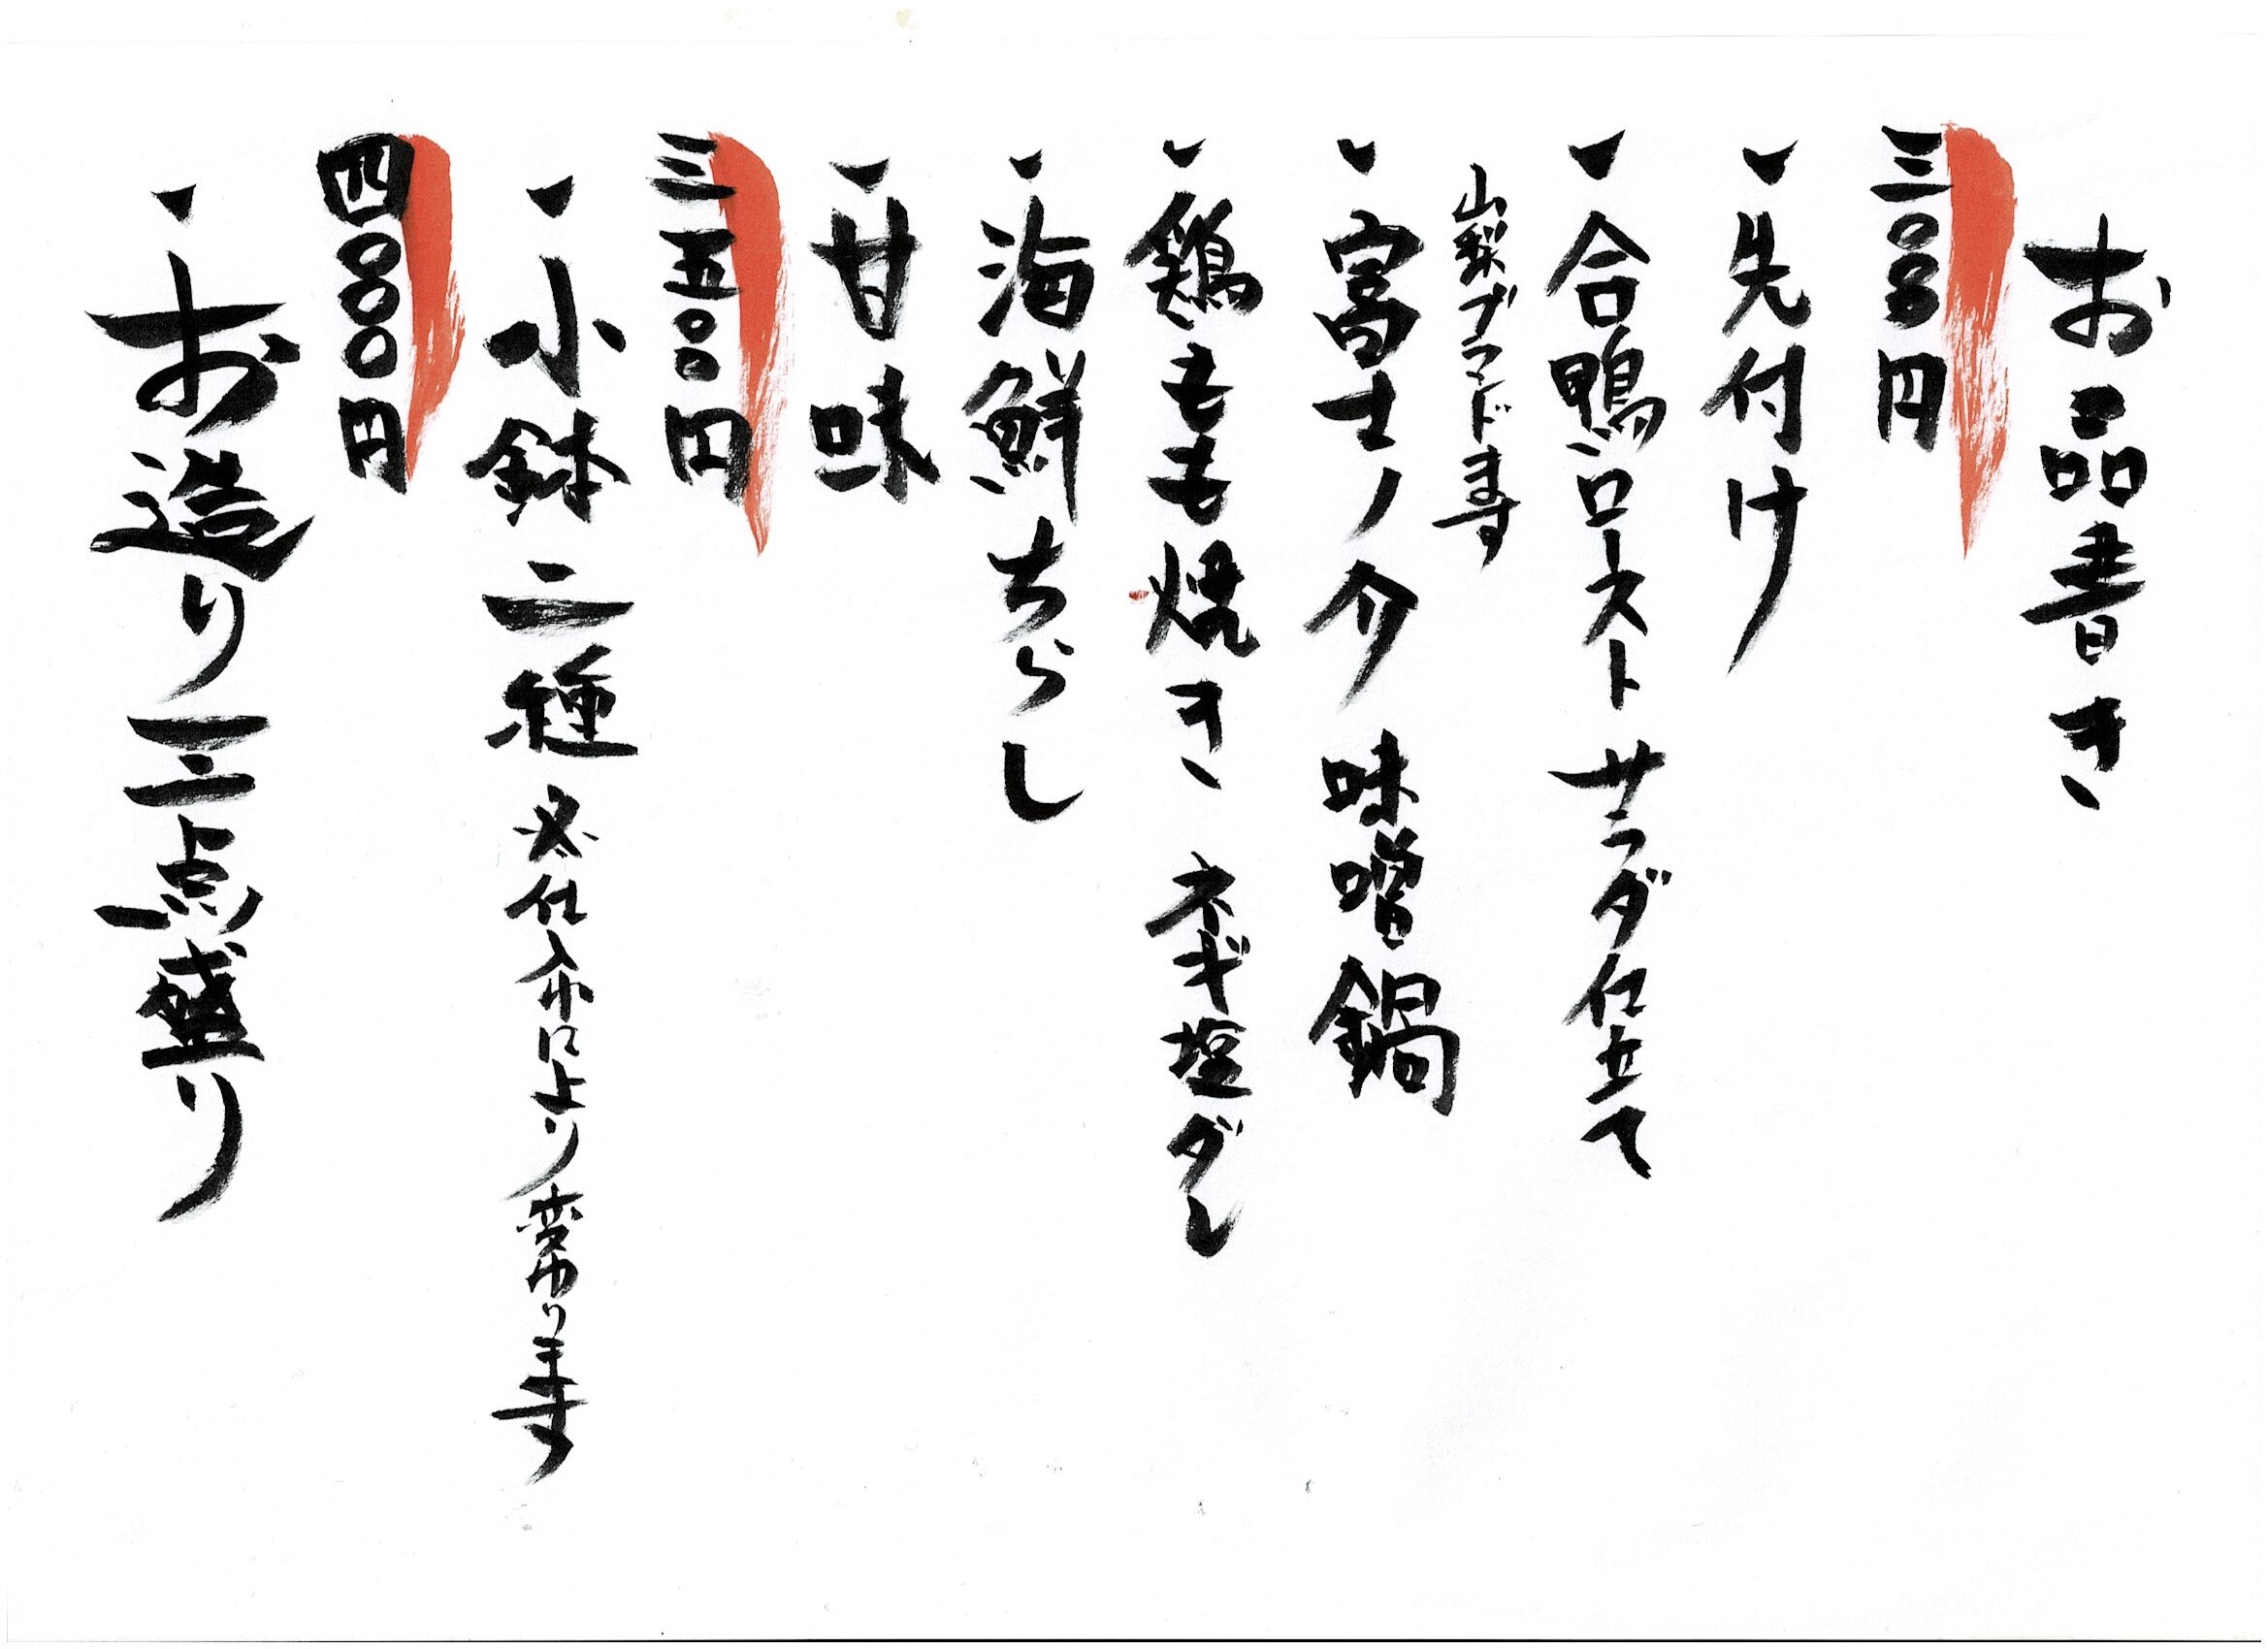 お品書き
三〇〇〇円
・先付け
・合鴨ロースト サラダ仕立て
山梨ブランドます
・富士ノ介 味噌鍋
・鶏もも焼き ネギ塩ダレ
・海鮮ちらし
・甘味
三五〇〇円
・小鉢二種 仕入れにより変わります
四〇〇〇円
・お造り三点盛り